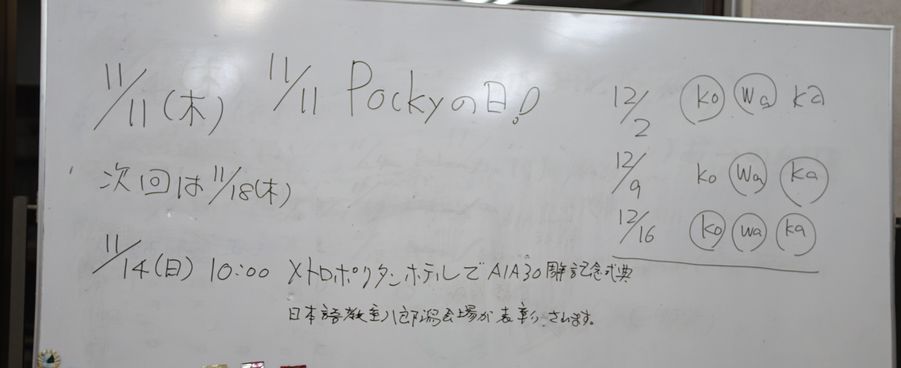 11/11(木) 11/11 Pockyの日!
次回は11/18(木)
11/14(日) 10:00 メトロポリタンホテルでAIA30周年記念式典
日本語教室八郎潟会場が表彰されます。
12/2 ko wa ka
12/9 ko wa ka
12/16 ko wa ka